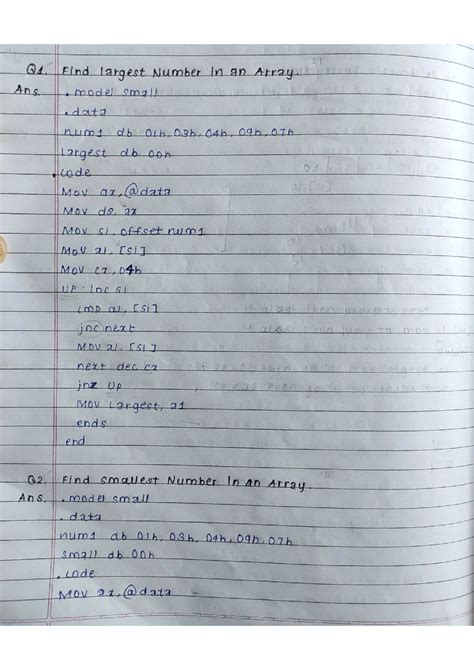 Q1. Find largest Number in an Array.
Ans. .model small
.data
num1 db 01h, 03h, 04h, 09h, 07h
largest db 00h
.code
Mov ax, @data
Mov ds, ax
Mov si, offset num1
Mov al, [si]
Mov cx, 04h
UP: Inc si
cmp al, [si]
jnc next
Mov al, [si]
next dec cx
jnz up
Mov largest, al
ends
end
Q2. Find smallest Number in an Array.
Ans. .model small
.data
num1 db 01h, 03h, 04h, 09h, 07h
small db 00h
.code
Mov ax, @data